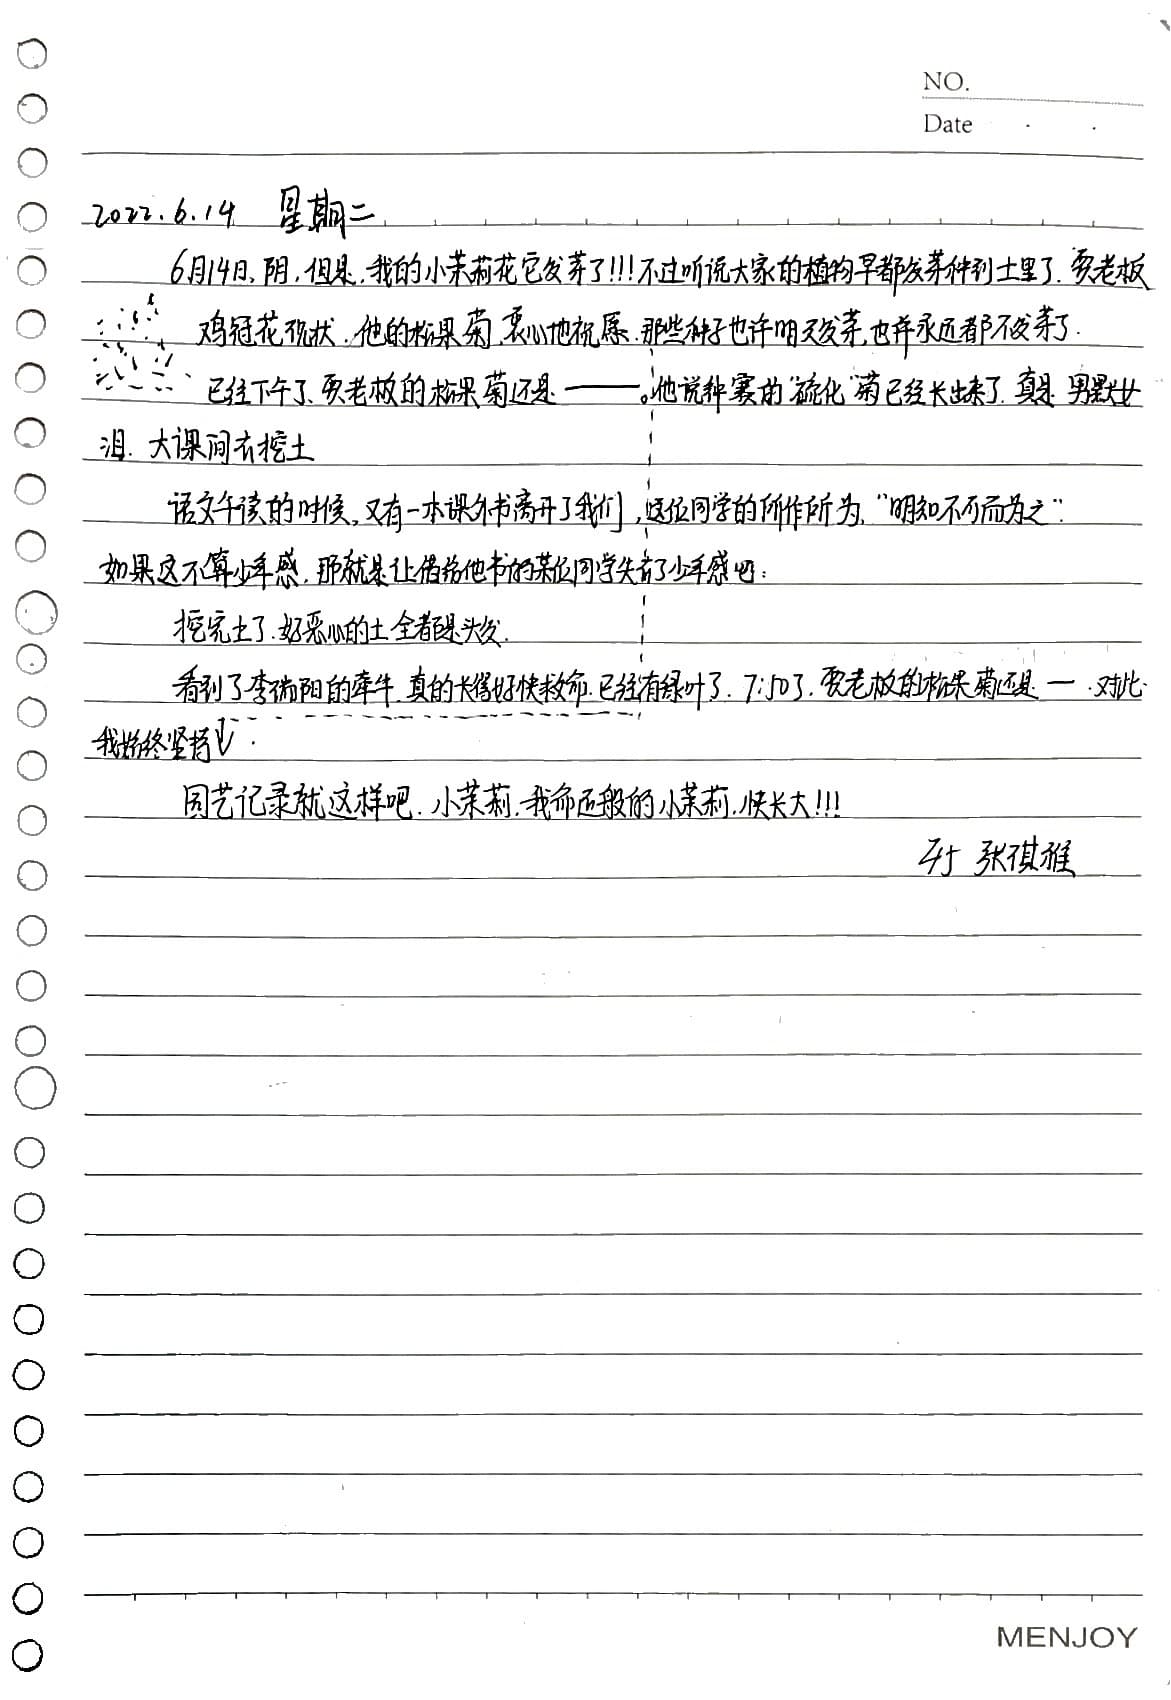 NO.
Date
2022.6.14 星期二
6月14日、阴,但是,我的小茉莉花它发芽了!!!不过听说大家的植物早都发芽种到土里了.贾老板
鸡冠花现状.他的松果菊,衷心地祝愿.那些种子也许明天发芽,也许永远都不发芽了.
已经下午了、贾老板的松果菊还是——。他说种赛的"硫化"菊已经长出来了.真是男默女
泪.大课间去挖土
语文午读的时候,又有一本课外书离开了我们,这位同学的所作所为,"明知不可而为之".
如果这不算少年感,那就是让借给他书的某位同学失去了少年感吧:
挖完土了.好恶心的土全都是头发.
看到了李瑞阳的牵牛.真的长得好快救命.已经有绿叶了.7:50了.贾老板的松果菊还是一.对此
我始终坚持.
园艺记录就这样吧.小茉莉.我命运般的小茉莉.快长大!!!
张祺雅
MENJOY